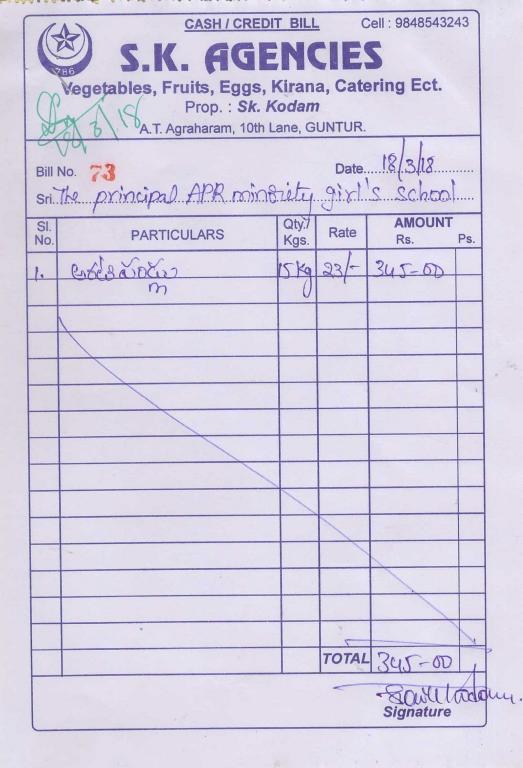 CASH / CREDIT BILL Cell : 9848543243
786
S.K. AGENCIES
Vegetables, Fruits, Eggs, Kirana, Catering Ect.
Prop. : Sk. Kodam
A.T. Agraharam, 10th Lane, GUNTUR.
Bill No. 73 Date 18/3/18
Sri. The principal APR minoriety girl's school
Sl. No. PARTICULARS Qty./ Kgs. Rate AMOUNT Rs. Ps.
1. అరటిపండ్లు 15 Kg 23/- 345-00
TOTAL 345-00
Signature